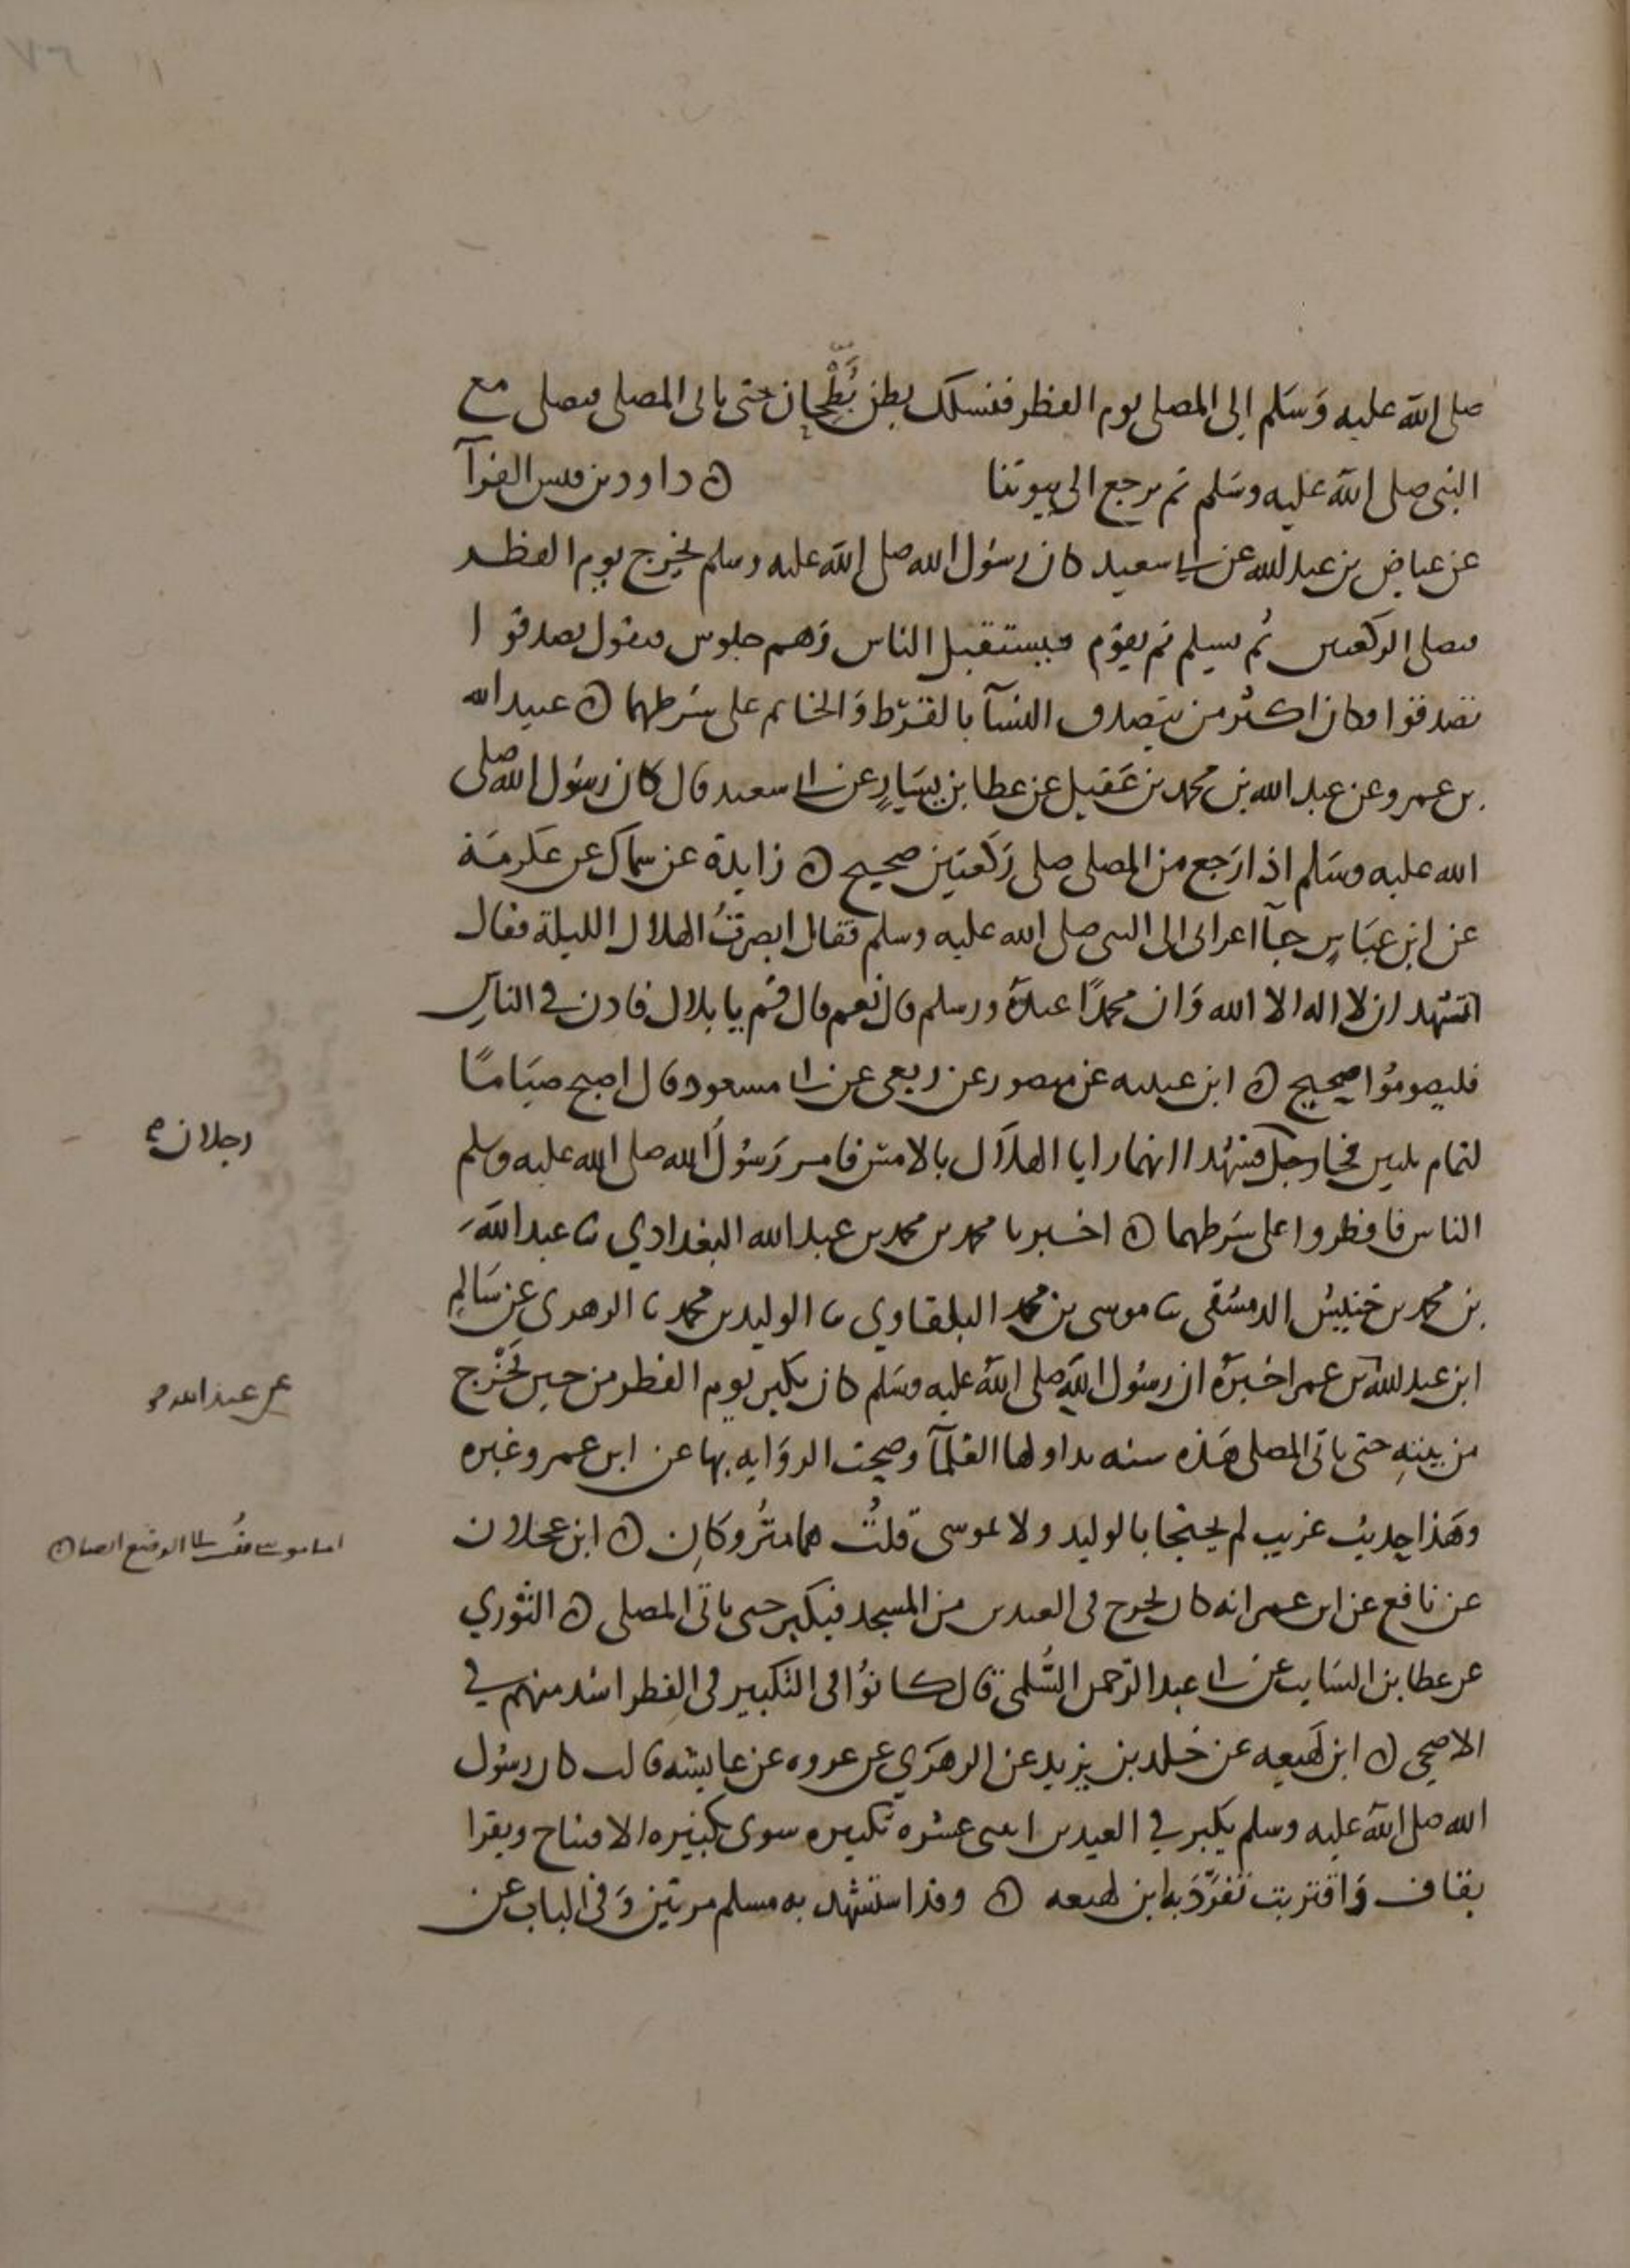 صلى الله عليه وَسَلم إلى المصلى يوم الفطر فنسلك بطن بُطْحان حتى ياتى المصلى فيصلى مع
النبى صلى الله عليه وسَلم ثم يرجع الى بيوتنا ه داود بن قيس الفرآ
عن عياض بن عبد الله عن ابى سعيد كان رسُول الله صلى الله عليه وسلم يخرج يوم الفطر
فيصلى الركعتين ثم يسلم ثم يقوم فيستقبل الناس وَهم جلوس فيقول تصدقوا
تصدقوا وكان اكثر من يتصدق النسآ بالقرط وَالخاتم على شرطهما ه عبيد الله
بن عمرو عن عبد الله بن محمد بن عَقيل عن عطا بن يسَارٍ عن ابى سعيد قال كان رسول الله صلى
الله عليه وسَلم اذا رَجع من المصلى صلى رَكعتين صحيح ه زايدة عن سماك عن عكرمَة
عن ابن عبَاسٍ جآ اعرابى الى النبى صلى الله عليه وسلم فقال ابصرتُ الهلال الليلة فقال
اتشهد ان لا اله الا الله وَان محمدًا عبدهُ ورسله قال نعم قال قم يا بلال فاذن في الناسِ
فليصومُوا صحيح ه ابن عيينه عن منصور عن ربعى عن ابى مسعود قال اصبح صيَامًا
لتمام ثلثين فجا رجل فشهدا انهما رايا الهلال بالامس فامر رَسُول الله صلى الله عليه وسلم
الناس فافطروا على شرطهما ه اخبرنا محمد بن محمد بن عبد الله البغدادي ثنا عبد الله
بن محمد بن خنيس الدمشقى ثنا موسى بن محمد البلقاوي ثنا الوليد بن محمد ثنا الزهرى عن سَالمِ
ابن عبد الله بن عمر اخبرهُ ان رسُول الله صلى الله عليه وسَلم كان يكبر يوم الفطر من حين يَخْرُج
من بيتهِ حتى ياتى المصلى هَذه سنه تداولها العُلمآ وصحت الروَايه بها عن ابن عمر وغيره
وهَذا حديث غريب لم يحتجا بالوليد ولا بموسى قلتُ هما متُروكان ه ابن عجلان
عن نافع عن ابن عمر انه كان يخرج فى العيدين من المسجد فيكبر حتى ياتى المصلى ه الثوري
عن عطا بن السَايب عن ابى عبد الرَحمن السُّلمى قال كانوُا فى التكبير فى الفطر اشد منهم في
الاضحى ه ابن لَهيعه عن خلد بن يزيد عن الزهرَي عن عروه عن عايشه قالت كان رسُول
الله صلى الله عليه وسلم يكبر في العيدين اثنتى عشره تكبيره سوى تكبيره الافتتاح ويقرا
بقاف وَاقتربت تفرَّدَ به ابن لهيعه ه وقد استشهد به مسلم مرتين وَفى الباب عن
رجلان
عن عبد الله
اما موسى